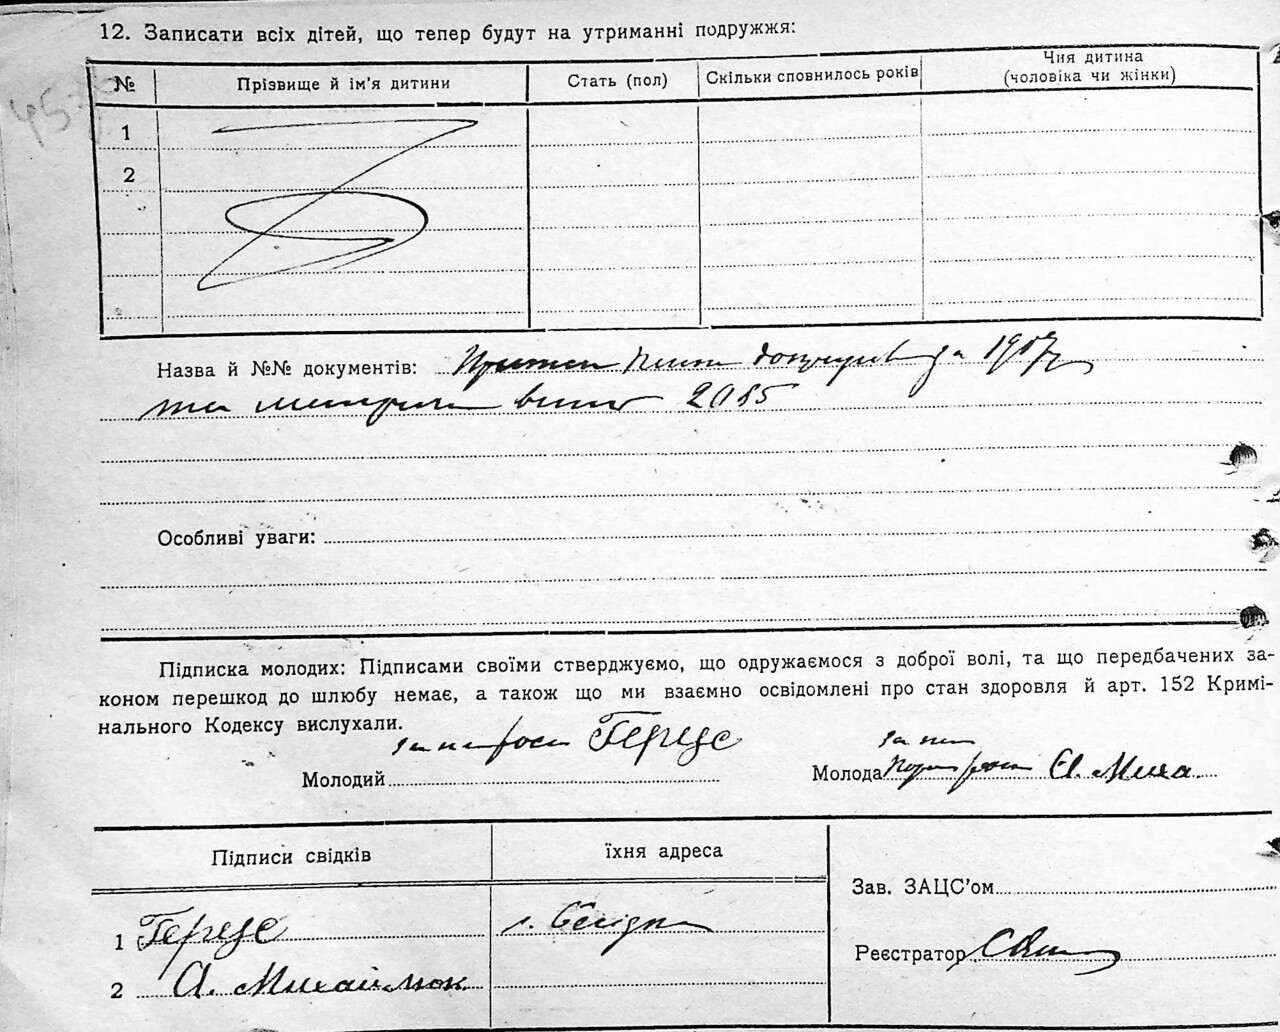 12. Записати всіх дітей, що тепер будут на утриманні подружжя:
№ Прізвище й ім'я дитини Стать (пол) Скільки сповнилось років Чия дитина (чоловіка чи жінки)
1
2
Назва й №№ документів: за 1907
та 2085
Особливі уваги:
Підписка молодих: Підписами своїми стверджуємо, що одружаємося з доброї волі, та що передбачених за-
коном перешкод до шлюбу немає, а також що ми взаємно освідомлені про стан здоровля й арт. 152 Кримі-
нального Кодексу вислухали.
Молодий
Молода А. Миха
Підписи свідків їхня адреса
Зав. ЗАЦС'ом
1
Реєстратор
2 А. Михайлюк